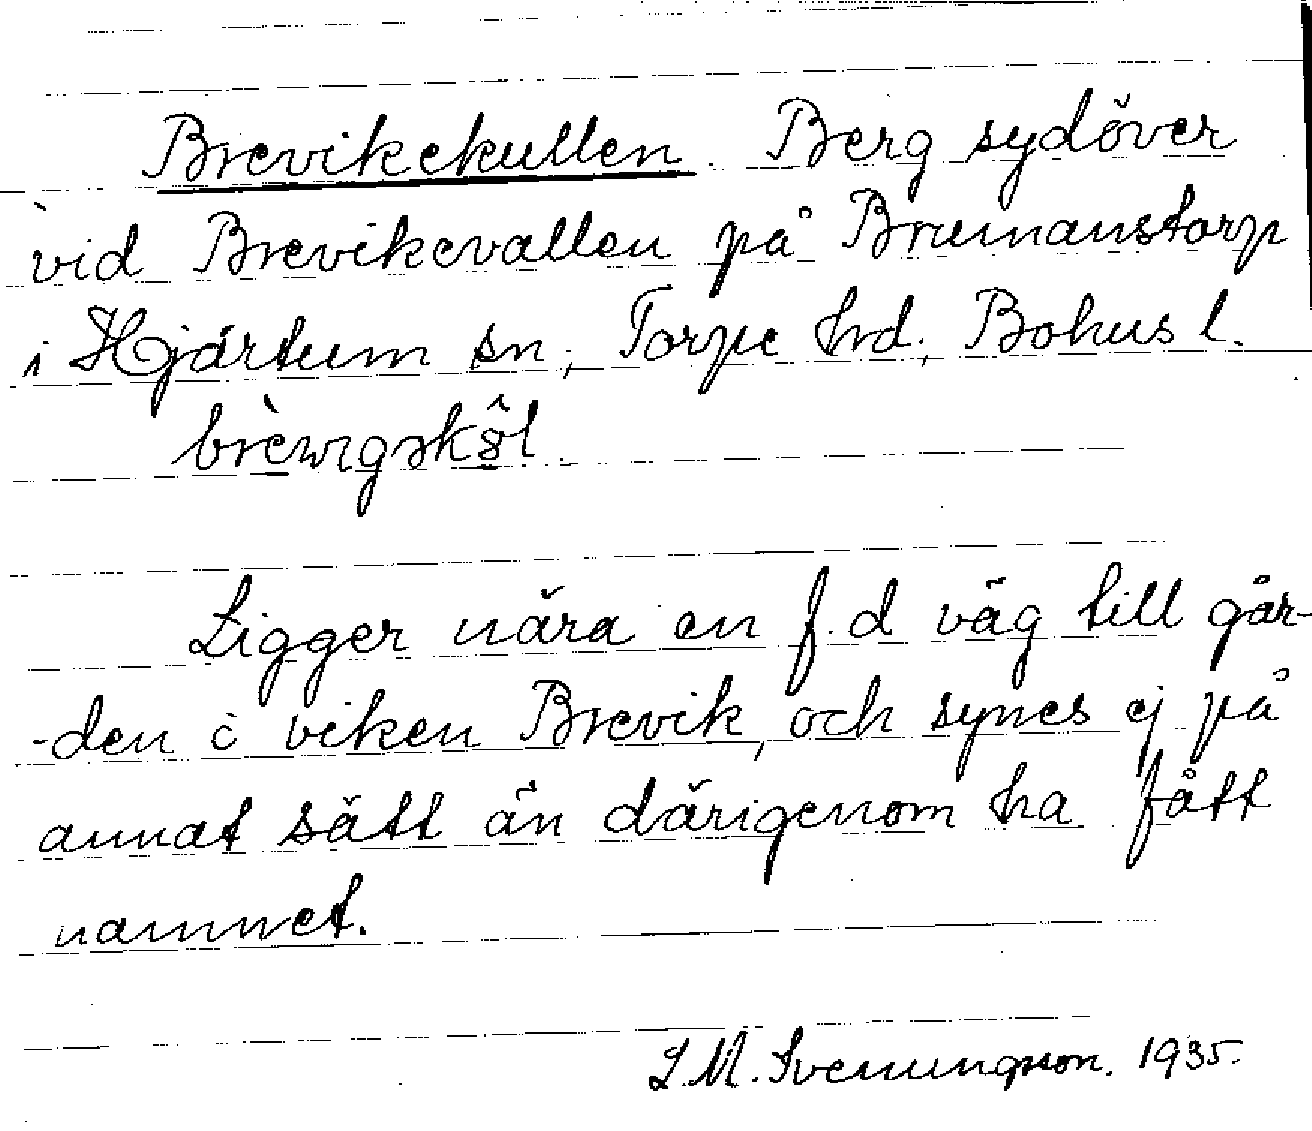 Brevikekullen. Berg sydöver
vid Brevikevallen på Brumanstorp
i Hjärtum sn, Torpe hrd, Bohus l.
Ligger nära en f.d väg till går-
-den i viken Brevik, och synes ej på
annat sätt än därigenom ha fått
namnet.
L.M. Svenungsson. 1935.